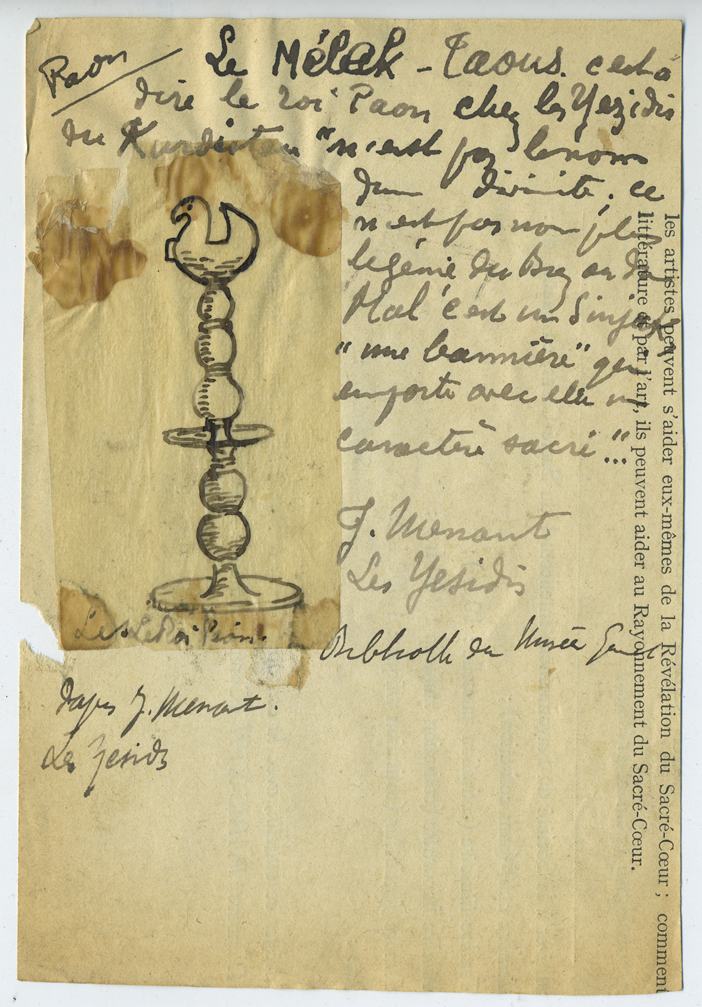 Paon
Le Mélek-Taous. c'est à
dire le roi Paon chez les Yezidis
du Kurdistan "n'est pas le nom
d'une divinité, ce
n'est pas non plus
le génie du Bien ou du
Mal c'est un
"une bannière" qui
emporte avec elle un
caractère sacré"...
J. Menant
Les Yesidis
du Musée
Le Roi Paon.
d'après J. Menant.
Les Yesidis
les artistes peuvent s'aider eux-mêmes de la Révélation du Sacré-Cœur ; comment
littérature et par l'art, ils peuvent aider au Rayonnement du Sacré-Cœur.